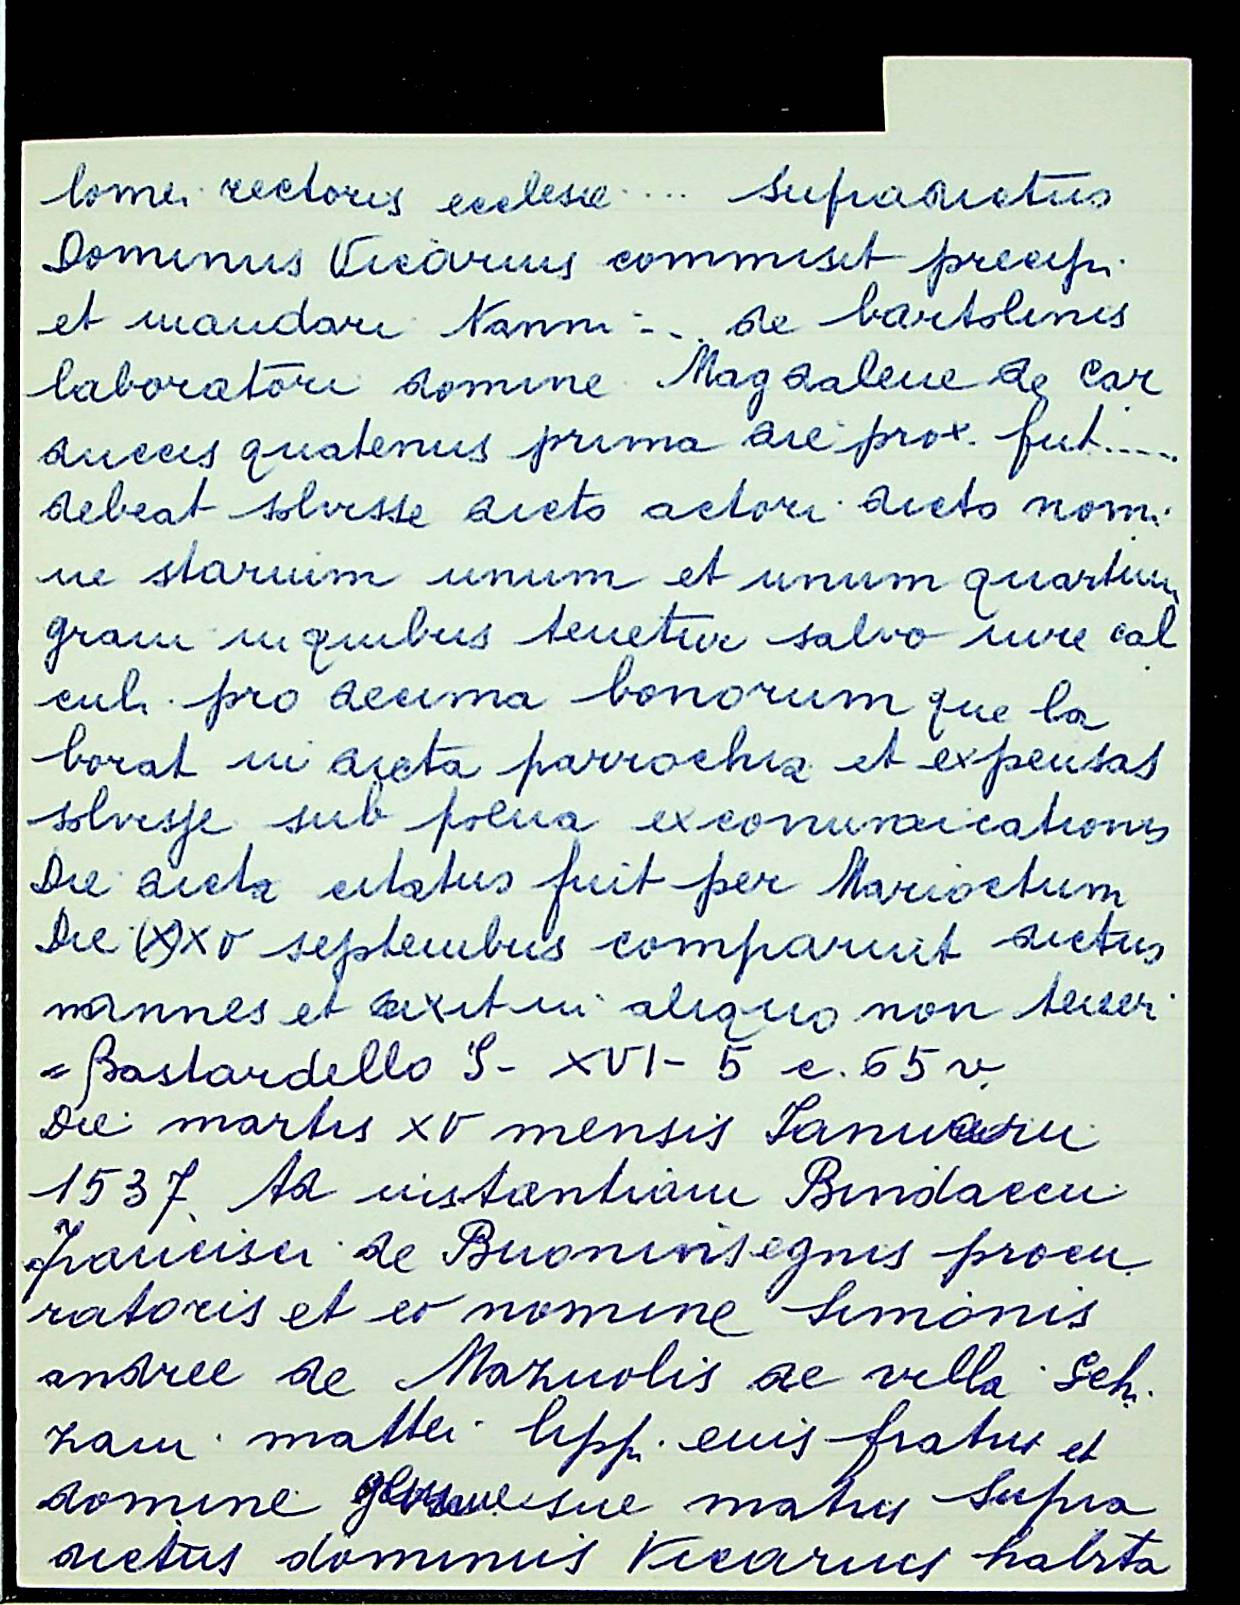 lomei rectoris ecclesie .... supradictus
Dominus Vicarius commisit precipi
et mandari Nanni - .. de bartolinis
laboratori domine Magdalene de Car
duccis quatenus prima die prox. fut.....
debeat solvisse dicto actori dicto nomi
ne starium unum et unum quartum
grani in quibus tenetur salvo iure cal
culi pro decima bonorum que la
borat in dicta parrochia et expensas
solvisse sub poena exconmunicationis
Die dicta citatus fuit per Marioctum
Die (X)XV septembris comparuit dictus
nannes et dixit in aliquo non teneri
= Bastardello S - XVI - 5 c. 65 v.
Die martis XV mensis Januarii
1537. Ad instantiam Bindaccii
Francisci de Buoninsegnis procu
ratoris et eo nomine Simonis
andree de Mazuolis de villa
mattei lippi euis fratris et
domine sue matris Supra
dictus dominus Vicarius habita